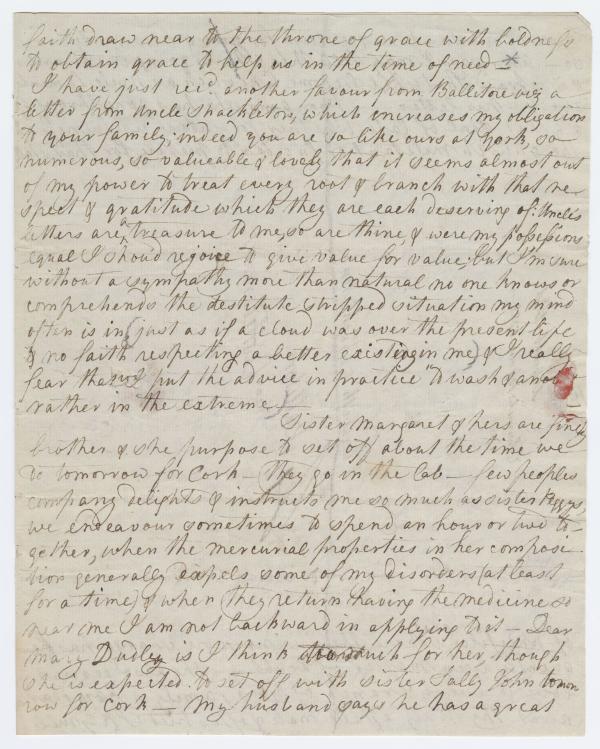 faith draw near to the throne of grace with boldness
to obtain grace to help us in the time of need —
I have just recd another favour from Ballitore viz a
letter from Uncle Shackleton, which increases my obligation
to your family; indeed you are so like ours at York, so
numerous, so valueable & lovely that it seems almost out
of my power to treat every root & branch with that re-
spect & gratitude which they are each deserving of: Uncles
letters are a treasure to me, so are thine & were my possessions
equal I shoud rejoice to give value for value; but I'm sure
without a sympathy more than natural no one knows or
comprehends the destitute stripped situation my mind
often is in, just as if a cloud was over the present life
& no faith respecting a better existing in me) & I really
fear that I put the advice in practice "to wash & anoint
rather in the extreme —
Sister Margaret & hers are finely
brother & she purpose to set off about the time we
do tomorrow for Cork — they go in the Cab — few peoples
company delights & instructs me so much as sister Peggys,
we endeavour sometimes to spend an hour or two to-
gether, when the mercurial properties in her composi-
tion generally expels some of my disorders (at least
for a time) & when they return having the medicine so
near me I am not backward in applying to it — Dear
Mary Dudley is I think much for her, though
she is expected to set off with sister Sally John tomor
row for Cork — My husband says he has a great